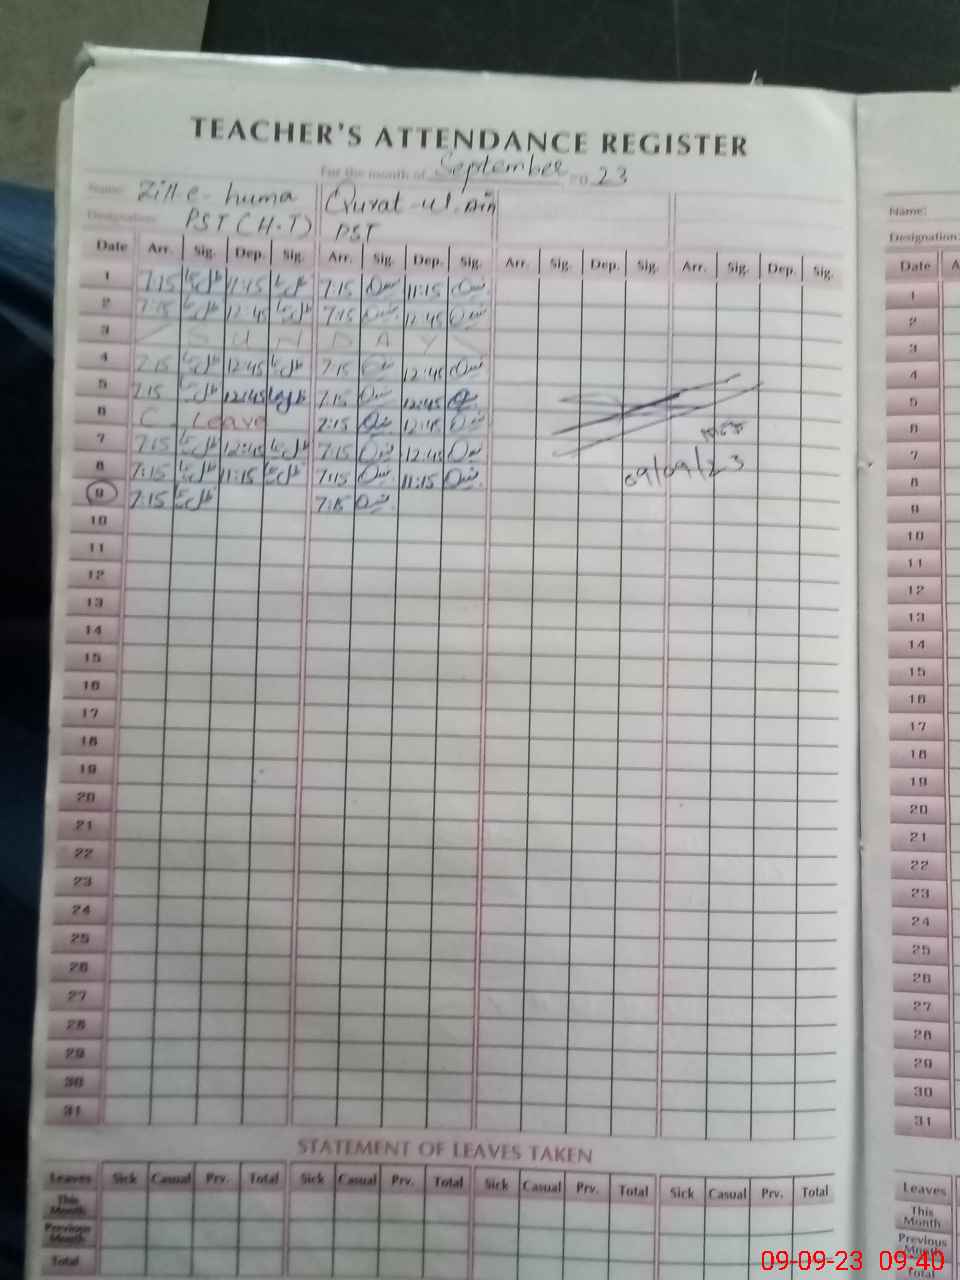 TEACHER'S ATTENDANCE REGISTER
For the month of September 20 23
Name: Zill e- huma Qurat-ul-Ain
Designation: PST (H.T) PST
Date Arr. Sig. Dep. Sig. Arr. Sig. Dep. Sig. Arr. Sig. Dep. Sig. Arr. Sig. Dep. Sig.
1 7:15 11:15 7:15 11:15
2 7:15 12:45 7:15 12:45
3 S U N D A Y
4 7:15 12:45 7:15 12:45
5 7:15 12:45 7:15 12:45
6 C. Leave 7:15 12:45
7 7:15 12:45 7:15 12:45
8 7:15 11:15 7:15 11:15
09/09/23
9 7:15 7:15
10
11
12
13
14
15
16
17
18
19
20
21
22
23
24
25
26
27
28
29
30
31
STATEMENT OF LEAVES TAKEN
Leaves Sick Casual Prv. Total Sick Casual Prv. Total Sick Casual Prv. Total Sick Casual Prv. Total
This Month
Previous Month
Total
Name:
Designation:
Date A
1
2
3
4
5
6
7
8
9
10
11
12
13
14
15
16
17
18
19
20
21
22
23
24
25
26
27
28
29
30
31
Leaves
This Month
Previous Month
Total
09-09-23 09:40